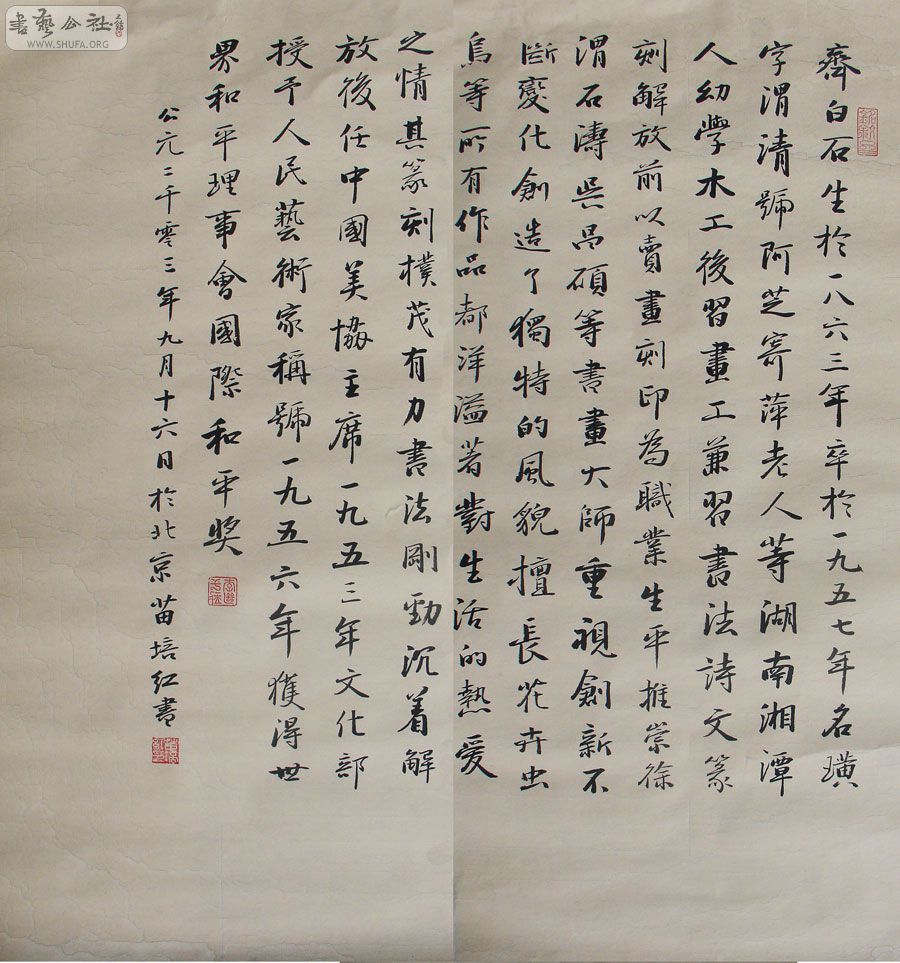 書藝公社
WWW.SHUFA.ORG
齊白石生於一八六三年卒於一九五七年名璜
字渭清號阿芝寄萍老人等湖南湘潭
人幼學木工後習畫工兼習書法詩文篆
刻解放前以賣畫刻印為職業生平推崇徐
渭石濤吳昌碩等書畫大師重視創新不
斷變化創造了獨特的風貌擅長花卉虫
鳥等所有作品都洋溢著對生活的熱愛
之情其篆刻樸茂有力書法剛勁沉着解
放後任中國美協主席一九五三年文化部
授予人民藝術家稱號一九五六年獲得世
界和平理事會國際和平奖
公元二千零三年九月十六日於北京苗培红書